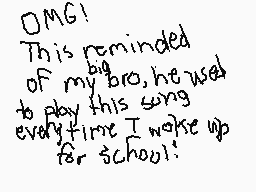 OMG!
This reminded
of my big bro, he used
to play this song
everytime I woke up
for school!